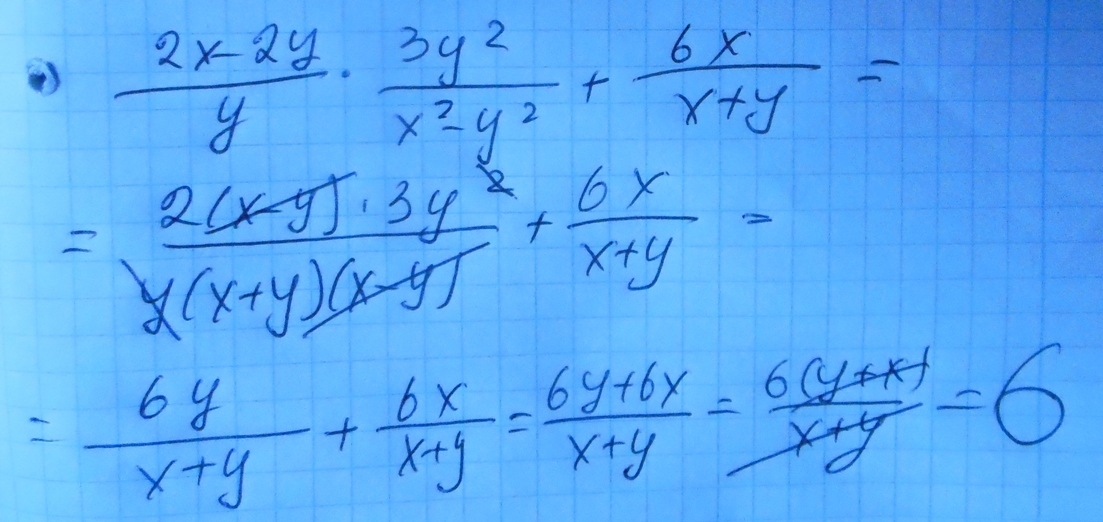 (2x-2y)/y · 3y²/(x²-y²) + 6x/(x+y) =
= 2(x-y)·3y²/(y(x+y)(x-y)) + 6x/(x+y) =
= 6y/(x+y) + 6x/(x+y) = (6y+6x)/(x+y) = 6(y+x)/(x+y) = 6